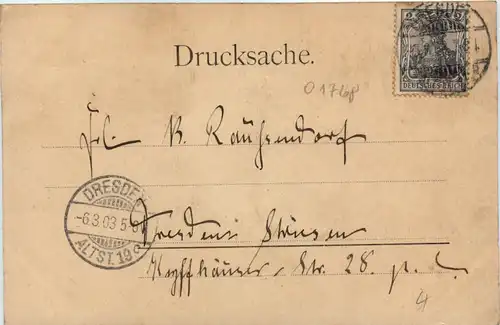 Drucksache.
2 2
DEUTSCHES REICH
Frl. B. Rauhendorf
DRESDEN
-6.3.03 5-6
ALTST. 19
Dresden Striesen
Kyffhäuser-Str. 28. p. l.
4